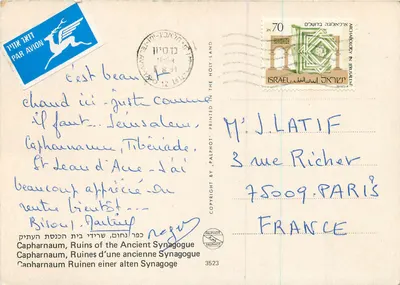 דואר אוויר
PAR AVION
70
ISRAEL
ישראל
ARCHAEOLOGY IN JERUSALEM
c'est beau
chaud ici - juste comme
il faut... Jérusalem,
Capharnaüm, Tibériade,
St Jean d'Acre - J'ai
beaucoup apprécié. On
rentre bientôt...
Bisous.
M. J. LATIF
3 rue Richer
75009. PARIS
FRANCE
PRINTED IN THE HOLY LAND
כפר נחום, שרידי בית הכנסת העתיק
Capharnaum, Ruins of the Ancient Synagogue
Capharnaum, Ruines d'une ancienne Synagogue
Capharnaum Ruinen einer alten Synagoge
3523